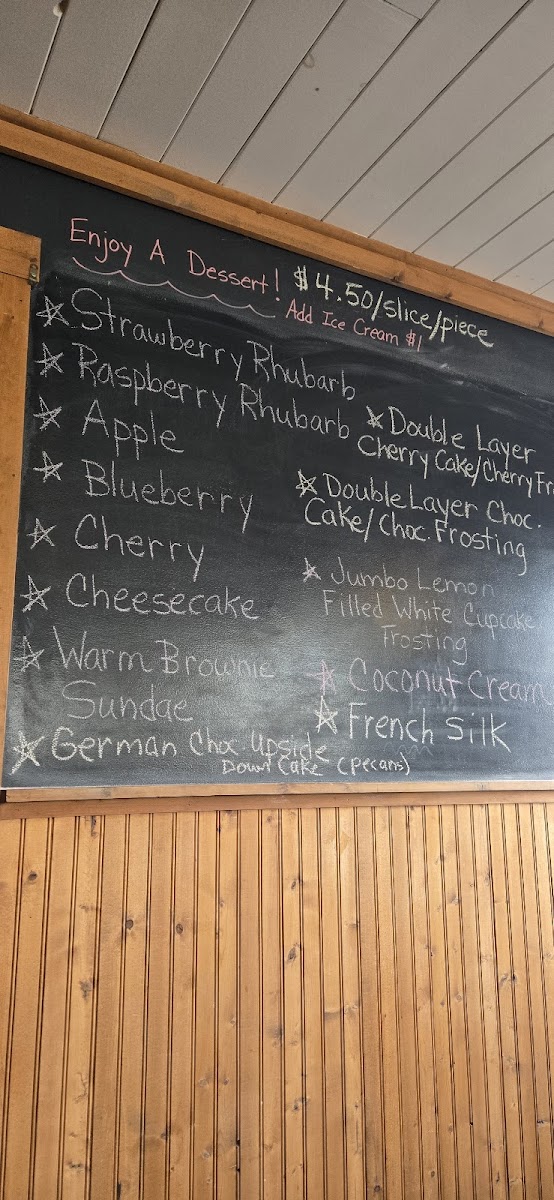 Enjoy A Dessert! $4.50/slice/piece
Add Ice Cream $1
Strawberry Rhubarb
Raspberry Rhubarb
Apple
Blueberry
Cherry
Cheesecake
Warm Brownie
Sundae
German Choc. Upside
Down Cake (Pecans)
Double Layer
Cherry Cake/Cherry
Double Layer Choc.
Cake/Choc. Frosting
Jumbo Lemon
Filled White Cupcake
Frosting
Coconut Cream
French Silk